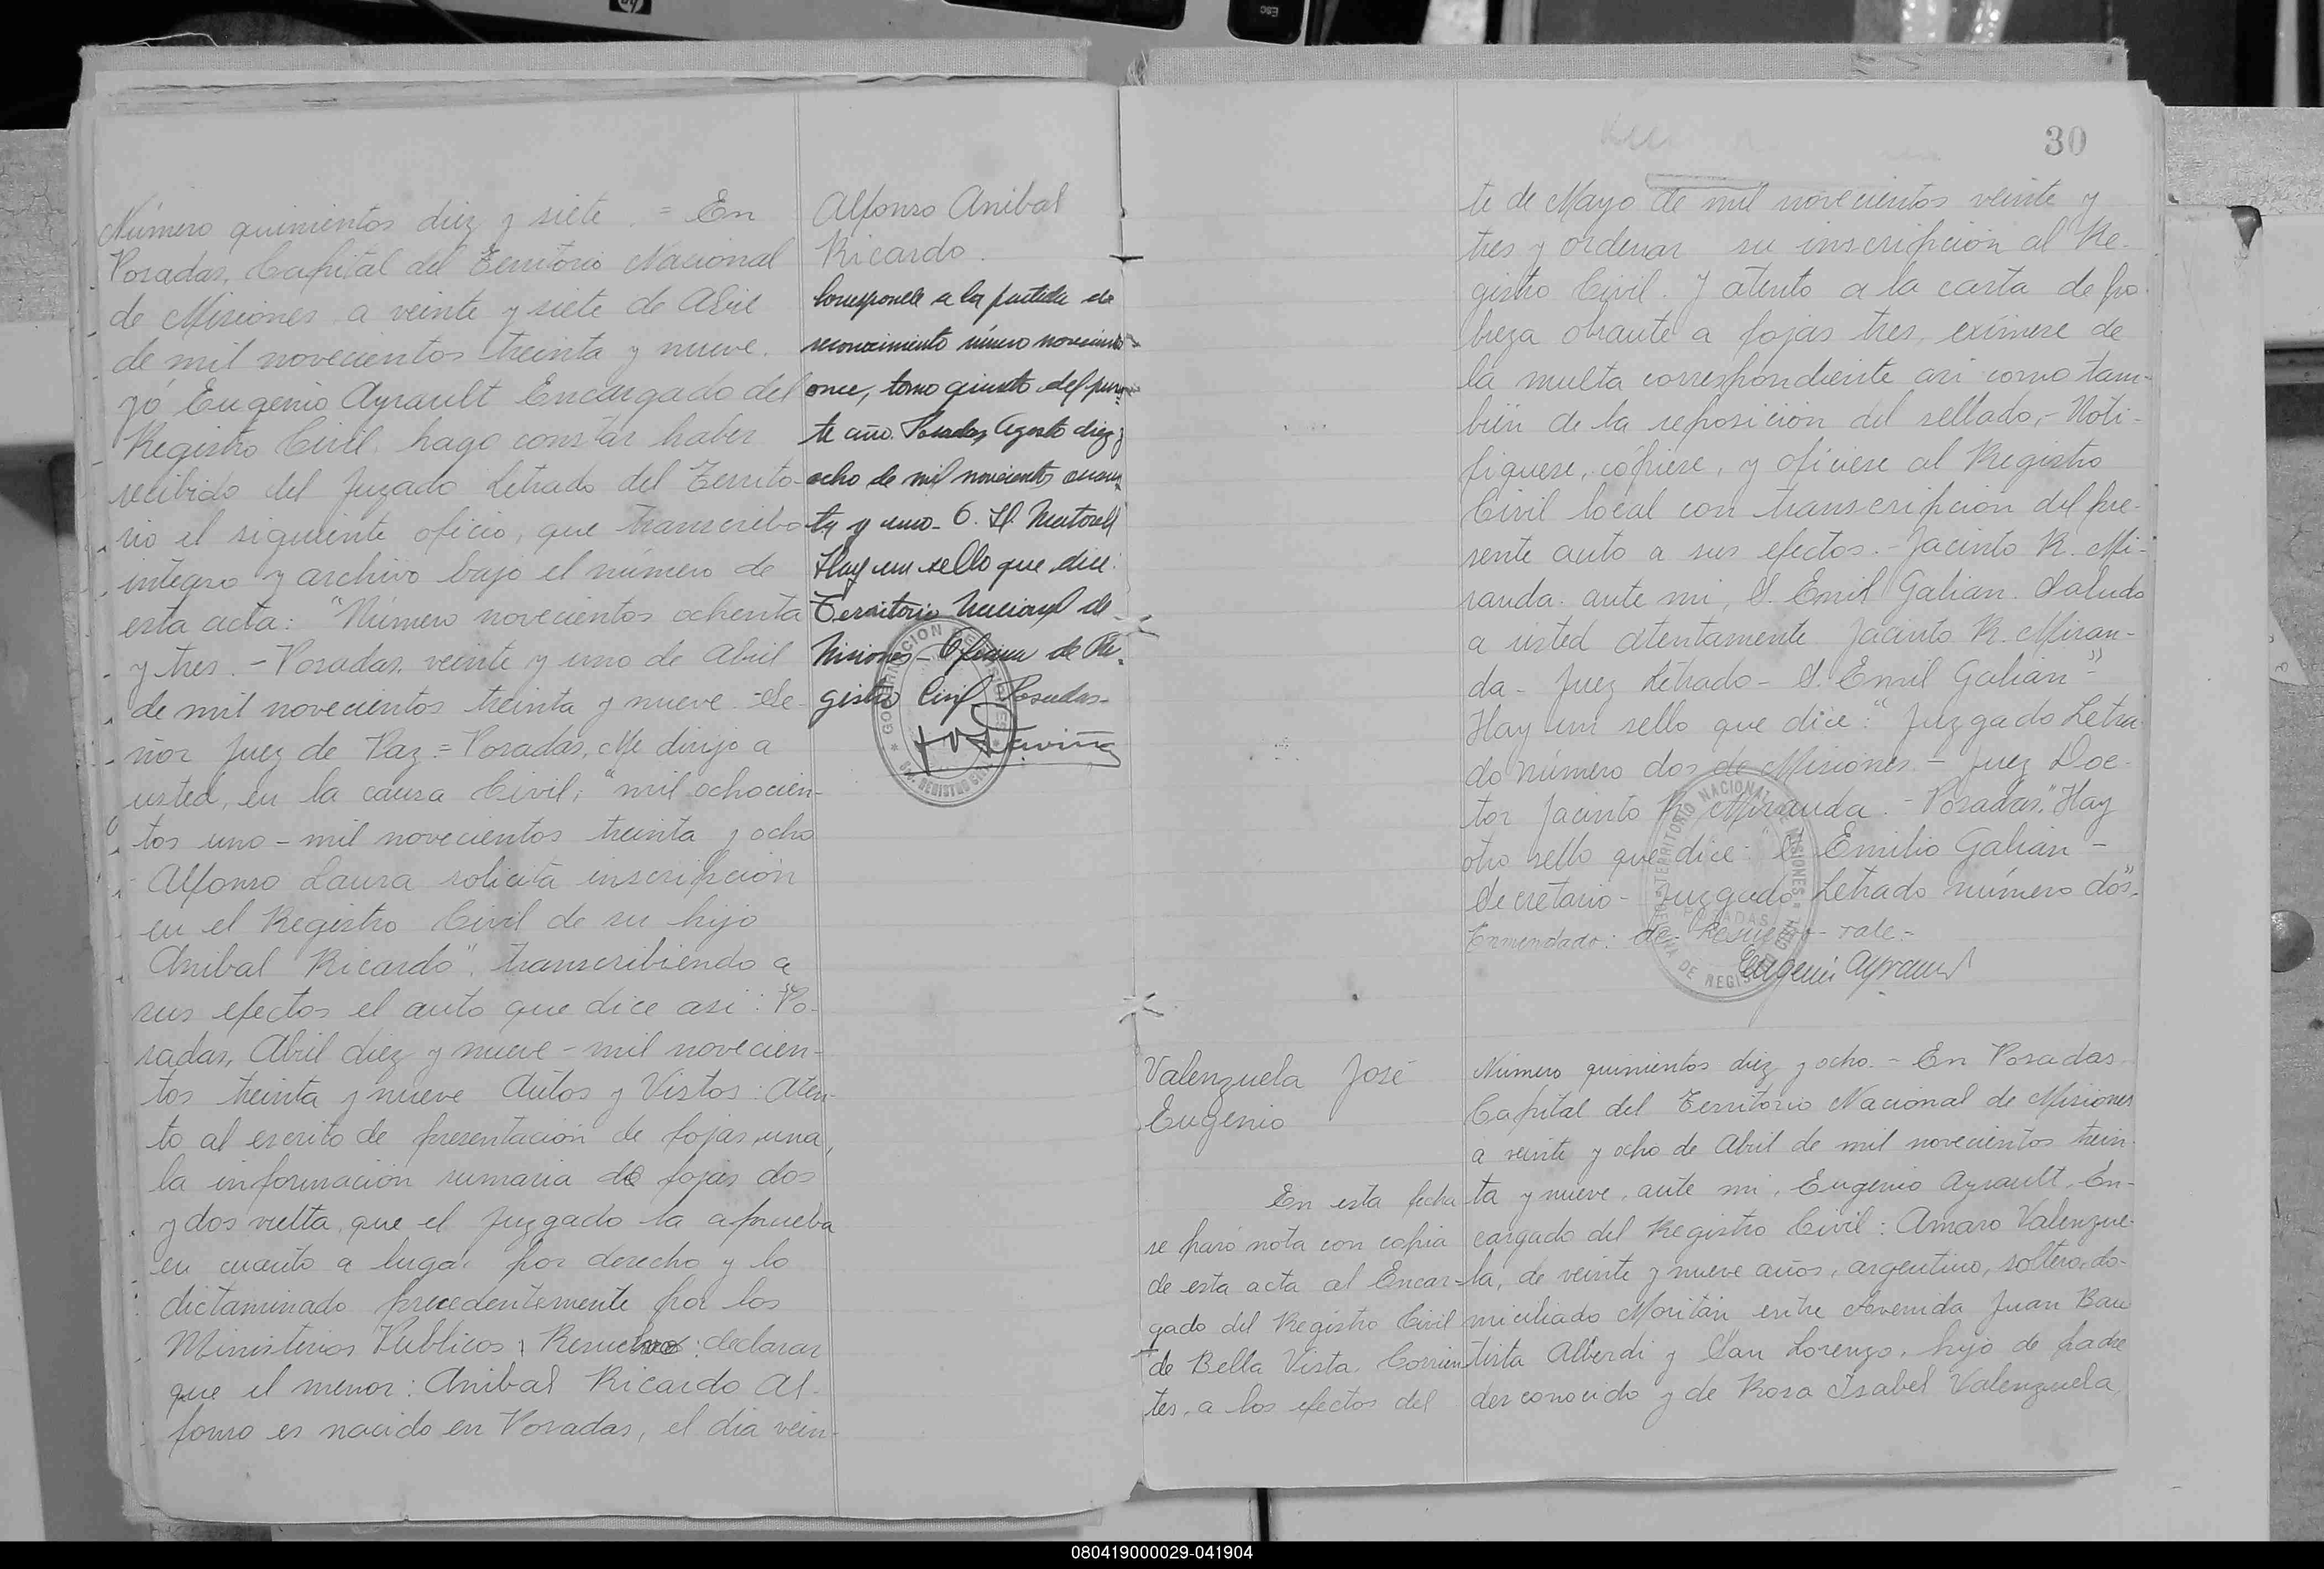 Número quinientos diez y siete. = En
Posadas, Capital del Territorio Nacional
de Misiones a veinte y siete de Abril
de mil novecientos treinta y nueve.
yó Eugenio Ayrault Encargado del
Registro Civil, hago constar haber
recibido del Juzgado Letrado del Territo-
rio el siguiente oficio, que transcribo
integro y archivo bajo el número de
esta acta: "Número novecientos ochenta
y tres. - Posadas, veinte y uno de Abril
de mil novecientos treinta y nueve - Se-
ñor Juez de Paz = Posadas, Me dirijo a
usted, en la causa Civil, "mil ochocien-
tos uno - mil novecientos treinta y ocho
Alfonso Laura solicita inscripción
en el Registro Civil de su hijo
Anibal Ricardo", transcribiendo a
sus efectos el auto que dice asi: "Po-
sadas, Abril diez y nueve - mil novecien-
tos treinta y nueve Autos y Vistos: Aten-
to al escrito de presentación de fojas una,
la información sumaria de fojas dos
y dos vuelta, que el Juzgado la aprueba
en cuanto a lugar por derecho y lo
dictaminado precedentemente por los
Ministerios Publicos; Resuelvo: declarar
que el menor: Anibal Ricardo Al-
fonso es nacido en Posadas, el dia vein-
Alfonso Anibal
Ricardo.
Corresponde a la partida de
reconocimiento número novecientos
once, tomo quinto del presen-
te año. Posadas Agosto diez y
ocho de mil novecientos cuaren-
ta y uno.
Hay un sello que dice:
Territorio Nacional de
Misiones - Oficina de Re-
gistro Civil Posadas-
30
te de Mayo de mil novecientos veinte y
tres y ordenar su inscripción al Re-
gistro Civil. Y atento a la carta de po-
breza obrante a fojas tres, eximese de
la multa correspondiente asi como tam-
bién de la reposición del sellado, - Noti-
fiquese, cópiese, y oficiese al Registro
Civil local con transcripción del pre-
sente auto a sus efectos. - Jacinto R. Mi-
randa. ante mi, S. Emil Galian. Saludo
a usted atentamente Jacinto R. Miran-
da - Juez Letrado - S. Emil Galian" -
Hay un sello que dice: "Juzgado Letra-
do número dos de Misiones. - Juez Doc-
tor Jacinto R. Miranda. - Posadas." Hay
otro sello que dice: "S. Emilio Galian -
Secretario - Juzgado Letrado número dos".
Enmendado: de - Resuelvo - vale. -
Eugenio Ayrault
Valenzuela José
Eugenio
En esta fecha
se pasó nota con copia
de esta acta al Encar-
gado del Registro Civil
de Bella Vista, Corrien-
tes, a los efectos del
Número quinientos diez y ocho. - En Posadas
Capital del Territorio Nacional de Misiones
a veinte y ocho de Abril de mil novecientos trein-
ta y nueve, ante mi, Eugenio Ayrault, En-
cargado del Registro Civil: Amaro Valenzue-
la, de veinte y nueve años, argentino, soltero, do-
miciliado Moritán entre Avenida Juan Bau
tista Alberdi y San Lorenzo, hijo de padre
desconocido y de Rosa Isabel Valenzuela,
080419000029-041904